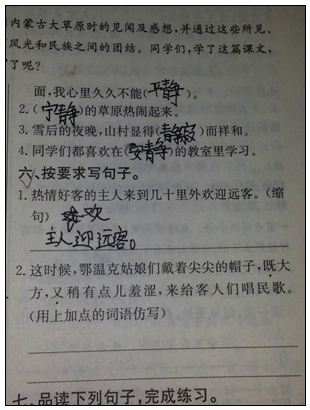 内蒙古大草原时的见闻及感想,并通过这些所见、
风光和民族之间的团结。同学们,学了这篇课文,
了呢?
面,我心里久久不能(平静)。
2.(宁静)的草原热闹起来。
3. 雪后的夜晚,山村显得(静寂)而祥和。
4. 同学们都喜欢在(安静)的教室里学习。
六、按要求写句子。
1. 热情好客的主人来到几十里外欢迎远客。(缩
句) 欢
主人迎远客。
2. 这时候,鄂温克姑娘们戴着尖尖的帽子,既大
方,又稍有点儿羞涩,来给客人们唱民歌。
(用上加点的词语仿写)
七、品读下列句子,完成练习。